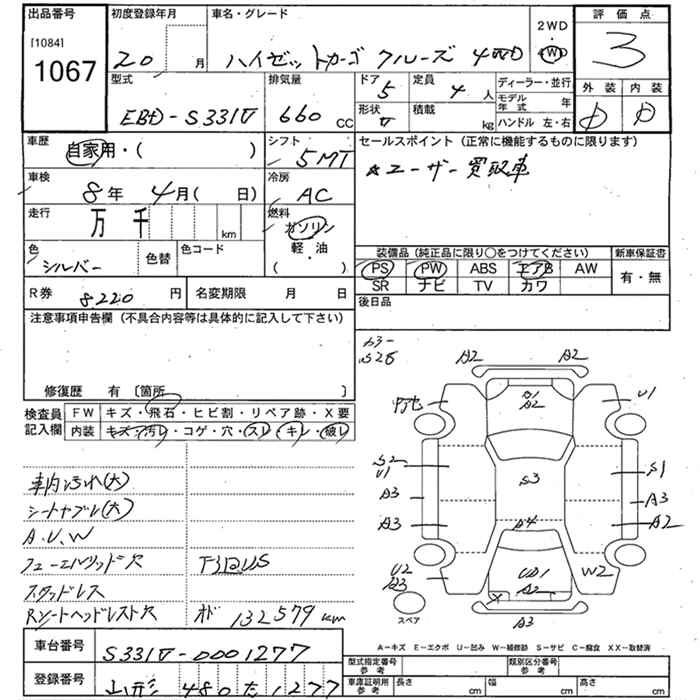 出品番号
[1084]
1067
初度登録年月
20 月
車名・グレード
ハイゼットカーゴ クルーズ 4WD
2WD
4WD
評価点
3
外装 内装
D D
型式
EBD-S331V
排気量
660 CC
ドア
5
定員
4 人
形状
V
積載
kg
ディーラー・並行
モデル年式 年
ハンドル 左・右
車歴
自家用・( )
シフト
5MT
セールスポイント(正常に機能するものに限ります)
☆ユーザー買取車
車検
8年 4月( 日)
冷房
AC
走行
万 千 km
燃料
ガソリン
軽・油
( )
色
シルバー
色替
色コード
装備品(純正品に限り○をつけてください)
新車保証書
PS PW ABS エアB AW
SR ナビ TV カワ
有・無
R券 8220 円
名変期限 月 日
後日品
注意事項申告欄(不具合内容等は具体的に記入して下さい)
修復歴 有 〔箇所 〕
検査員記入欄
FW キズ・飛石・ヒビ割・リペア跡・X要
内装 キズ・汚レ・コゲ・穴・スレ・キレ・破レ
車内汚れ(大)
シートヤブレ(大)
A.U.W
フューエルリッド欠
スタッドレス
Rシートヘッドレスト欠
下回りUS
オド 132579km
A2 A2
B1
A2
U1
S2
U1
A3
A3
S3
S1
A3
A2
A4
U2
B3
UB1
A2
W2
X
A3
スペア
A－キズ E－エクボ U－凹み W－補修跡 S－サビ C－腐食 XX－取替済
車台番号 S331V-0001277
登録番号 山形 480 た 1277
型式指定番号 参考
類別区分番号 参考
車庫証明用 参考
長さ cm
幅 cm
高さ cm